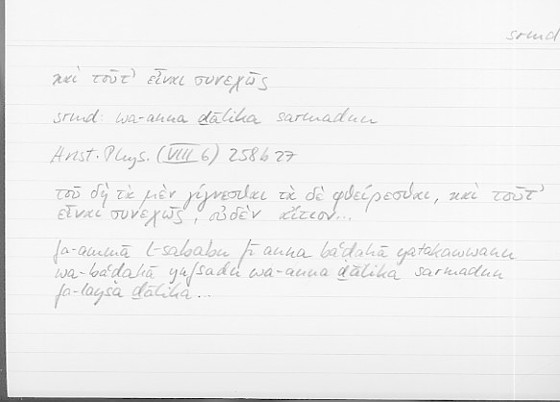 srmd
καὶ τοῦτ' εἶναι συνεχῶς
srmd: wa-anna ḏālika sarmadun
Arist. Phys. (VIII 6) 258b27
τοῦ δὴ τὰ μὲν γίγνεσθαι τὰ δὲ φθείρεσθαι, καὶ τοῦτ'
εἶναι συνεχῶς, οὐδὲν αἴτιον...
fa-ammā l-sababu fī anna baʿḍahā yatakawwanu
wa-baʿḍahā yafsadu wa-anna ḏālika sarmadun
fa-laysa ḏālika...